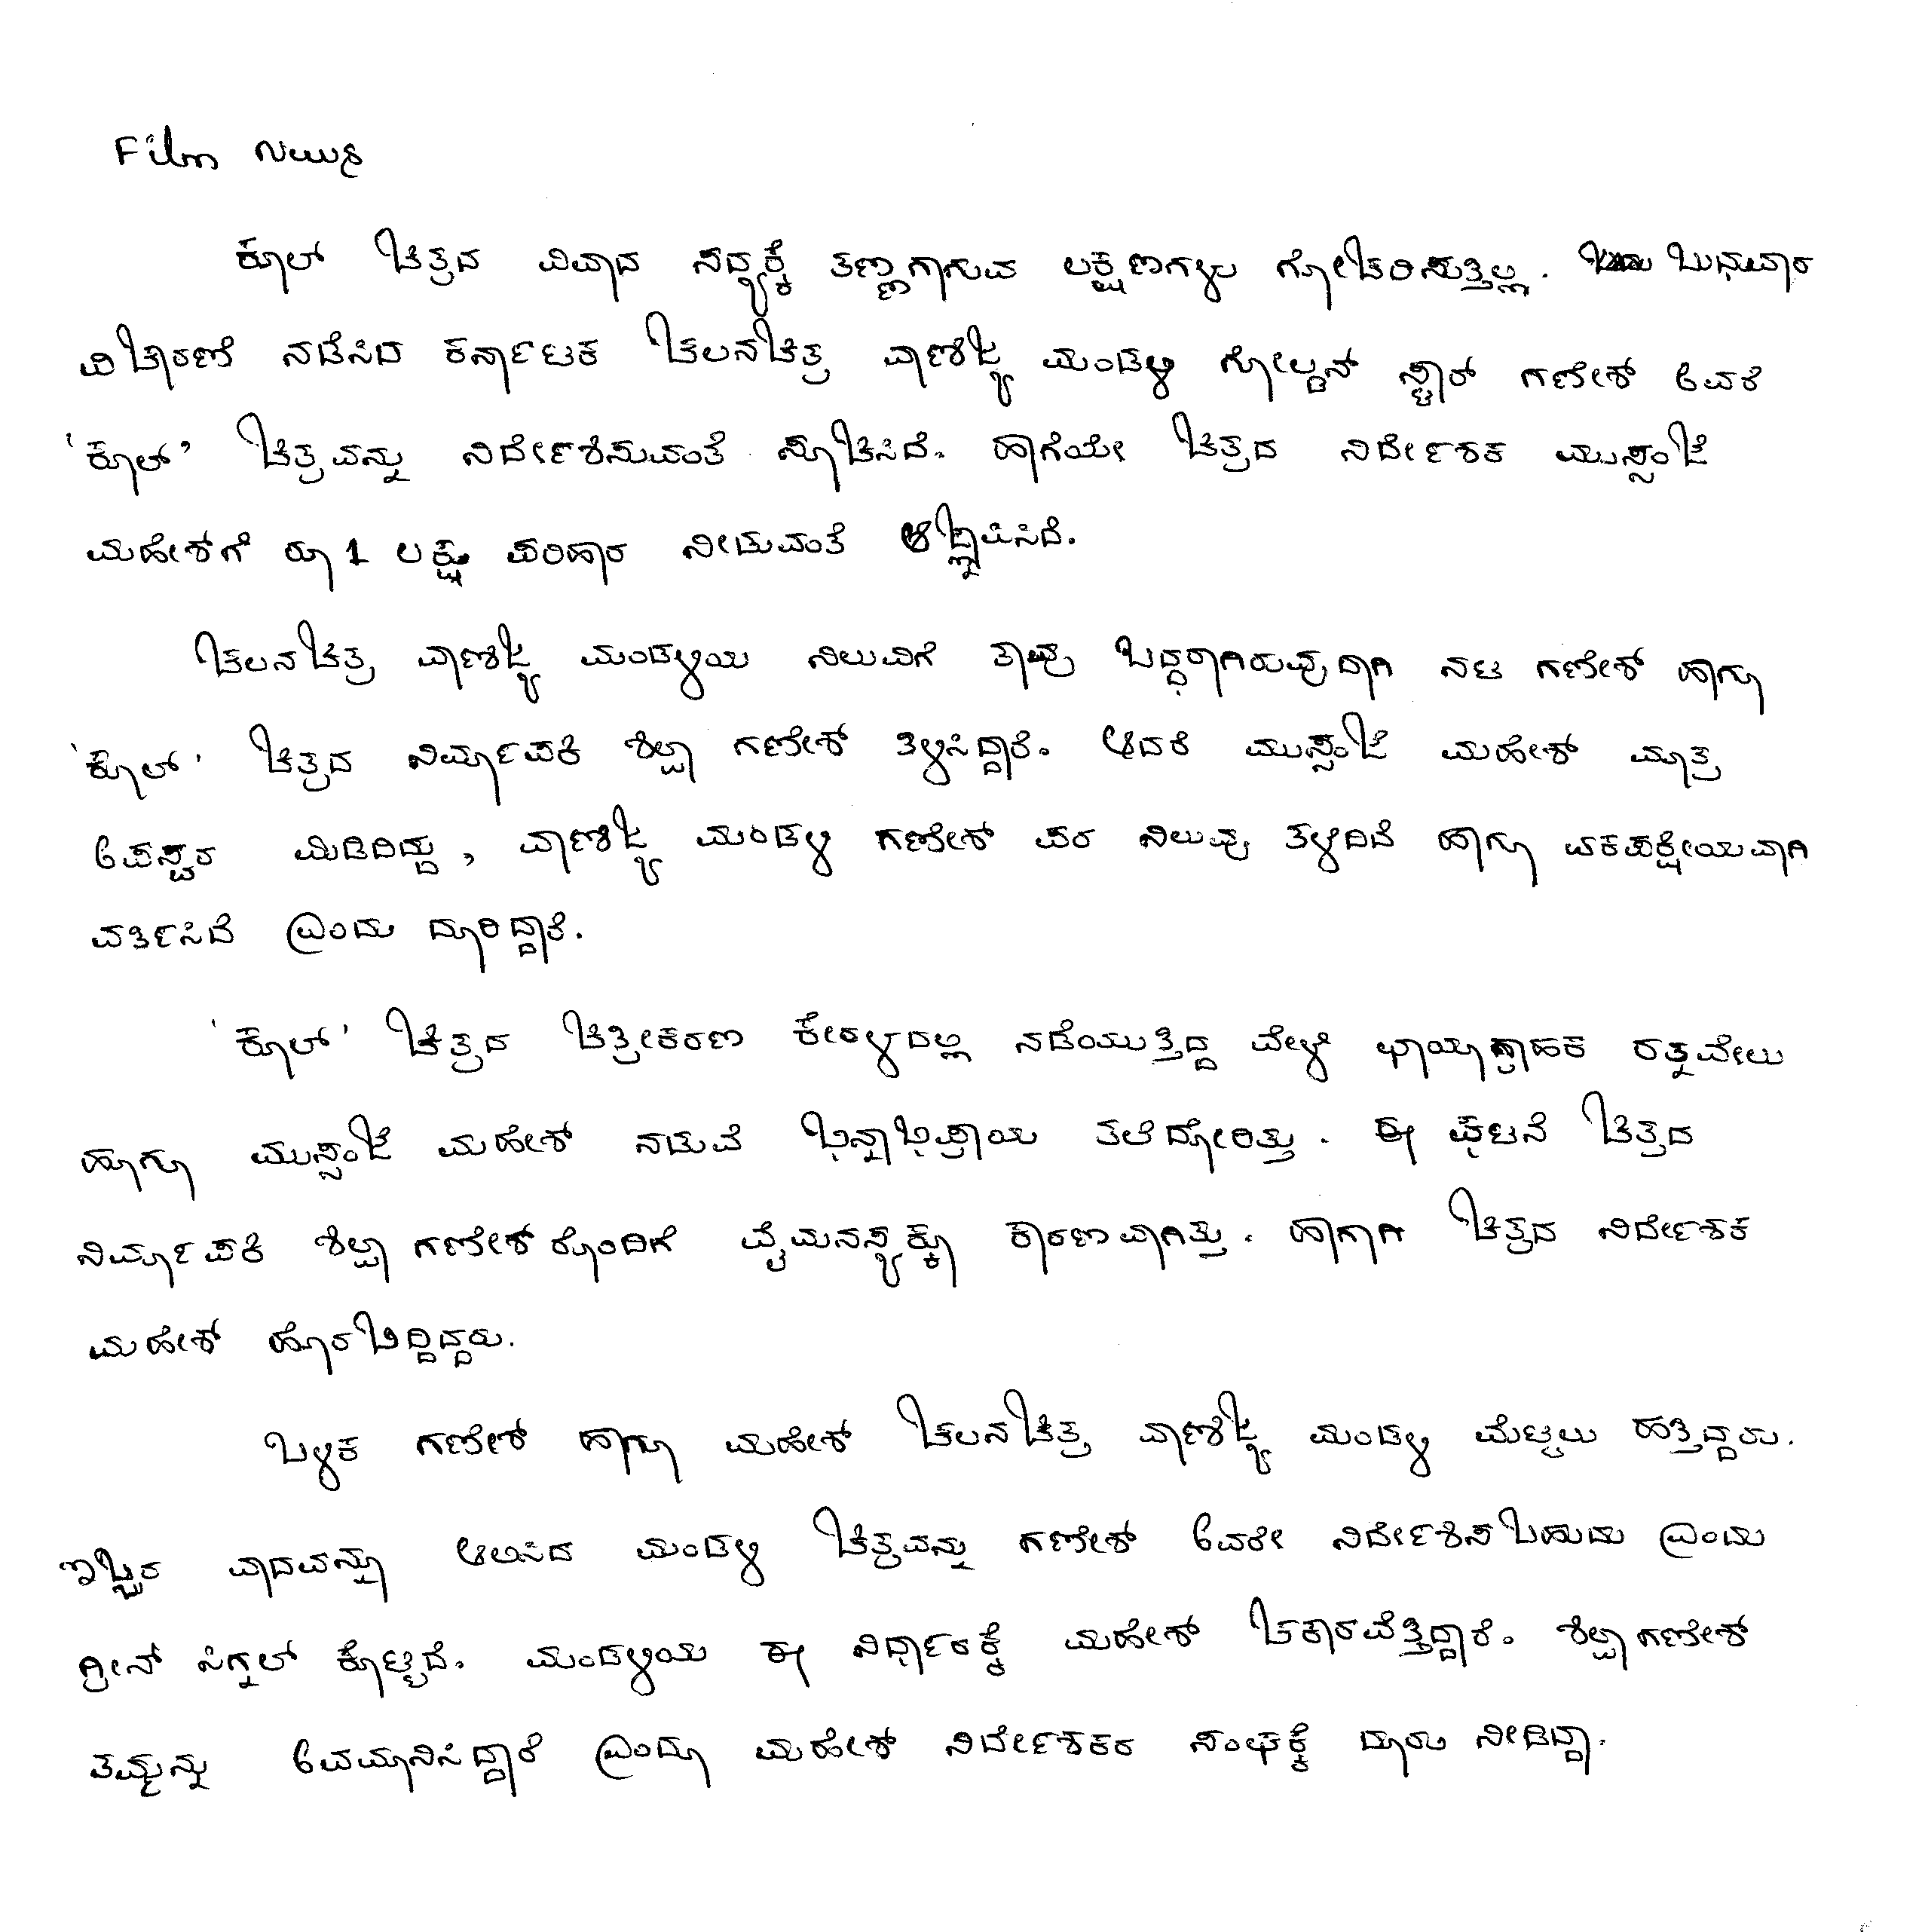 Film News
ಕೂಲ್ ಚಿತ್ರದ ವಿವಾದ ಸದ್ಯಕ್ಕೆ ತಣ್ಣಗಾಗುವ ಲಕ್ಷಣಗಳು ಗೋಚರಿಸುತ್ತಿಲ್ಲ. ಬುಧವಾರ
ವಿಚಾರಣೆ ನಡೆಸಿದ ಕರ್ನಾಟಕ ಚಲನಚಿತ್ರ ವಾಣಿಜ್ಯ ಮಂಡಳಿ ಗೋಲ್ಡನ್ ಸ್ಟಾರ್ ಗಣೇಶ್ ಅವರೆ
'ಕೂಲ್' ಚಿತ್ರವನ್ನು ನಿರ್ದೇಶಿಸುವಂತೆ ಸೂಚಿಸಿದೆ. ಹಾಗೆಯೇ ಚಿತ್ರದ ನಿರ್ದೇಶಕ ಮುಸ್ಸಂಜೆ
ಮಹೇಶ್‌ಗೆ ರೂ 1 ಲಕ್ಷ ಪರಿಹಾರ ನೀಡುವಂತೆ ಆಜ್ಞಾಪಿಸಿದೆ.
ಚಲನಚಿತ್ರ ವಾಣಿಜ್ಯ ಮಂಡಳಿಯ ನಿಲುವಿಗೆ ತಾವು ಬದ್ಧರಾಗಿರುವುದಾಗಿ ನಟ ಗಣೇಶ್ ಹಾಗೂ
'ಕೂಲ್' ಚಿತ್ರದ ನಿರ್ಮಾಪಕಿ ಶಿಲ್ಪಾ ಗಣೇಶ್ ತಿಳಿಸಿದ್ದಾರೆ. ಆದರೆ ಮುಸ್ಸಂಜೆ ಮಹೇಶ್ ಮಾತ್ರ
ಅಪಸ್ವರ ಮಿಡಿದಿದ್ದು, ವಾಣಿಜ್ಯ ಮಂಡಳಿ ಗಣೇಶ್ ಪರ ನಿಲುವು ತಳೆದಿದೆ ಹಾಗೂ ಏಕಪಕ್ಷೀಯವಾಗಿ
ವರ್ತಿಸಿದೆ ಎಂದು ದೂರಿದ್ದಾರೆ.
'ಕೂಲ್' ಚಿತ್ರದ ಚಿತ್ರೀಕರಣ ಕೇರಳದಲ್ಲಿ ನಡೆಯುತ್ತಿದ್ದ ವೇಳೆ ಛಾಯಾಗ್ರಾಹಕ ರತ್ನವೇಲು
ಹಾಗೂ ಮುಸ್ಸಂಜೆ ಮಹೇಶ್ ನಡುವೆ ಭಿನ್ನಾಭಿಪ್ರಾಯ ತಲೆದೋರಿತ್ತು. ಈ ಘಟನೆ ಚಿತ್ರದ
ನಿರ್ಮಾಪಕಿ ಶಿಲ್ಪಾ ಗಣೇಶ್‌ರೊಂದಿಗೆ ವೈಮನಸ್ಯಕ್ಕೂ ಕಾರಣವಾಗಿತ್ತು. ಹಾಗಾಗಿ ಚಿತ್ರದ ನಿರ್ದೇಶಕ
ಮಹೇಶ್ ಹೊರಬಿದ್ದಿದ್ದರು.
ಬಳಿಕ ಗಣೇಶ್ ಹಾಗೂ ಮಹೇಶ್ ಚಲನಚಿತ್ರ ವಾಣಿಜ್ಯ ಮಂಡಳಿ ಮೆಟ್ಟಿಲು ಹತ್ತಿದ್ದರು.
ಇಬ್ಬರ ವಾದವನ್ನೂ ಆಲಿಸಿದ ಮಂಡಳಿ ಚಿತ್ರವನ್ನು ಗಣೇಶ್ ಅವರೇ ನಿರ್ದೇಶಿಸಬಹುದು ಎಂದು
ಗ್ರೀನ್ ಸಿಗ್ನಲ್ ಕೊಟ್ಟಿದೆ. ಮಂಡಳಿಯ ಈ ನಿರ್ಧಾರಕ್ಕೆ ಮಹೇಶ್ ಚಕಾರವೆತ್ತಿದ್ದಾರೆ. ಶಿಲ್ಪಾಗಣೇಶ್
ತಮ್ಮನ್ನು ಅವಮಾನಿಸಿದ್ದಾರೆ ಎಂದೂ ಮಹೇಶ್ ನಿರ್ದೇಶಕರ ಸಂಘಕ್ಕೆ ದೂರು ನೀಡಿದ್ದಾ.